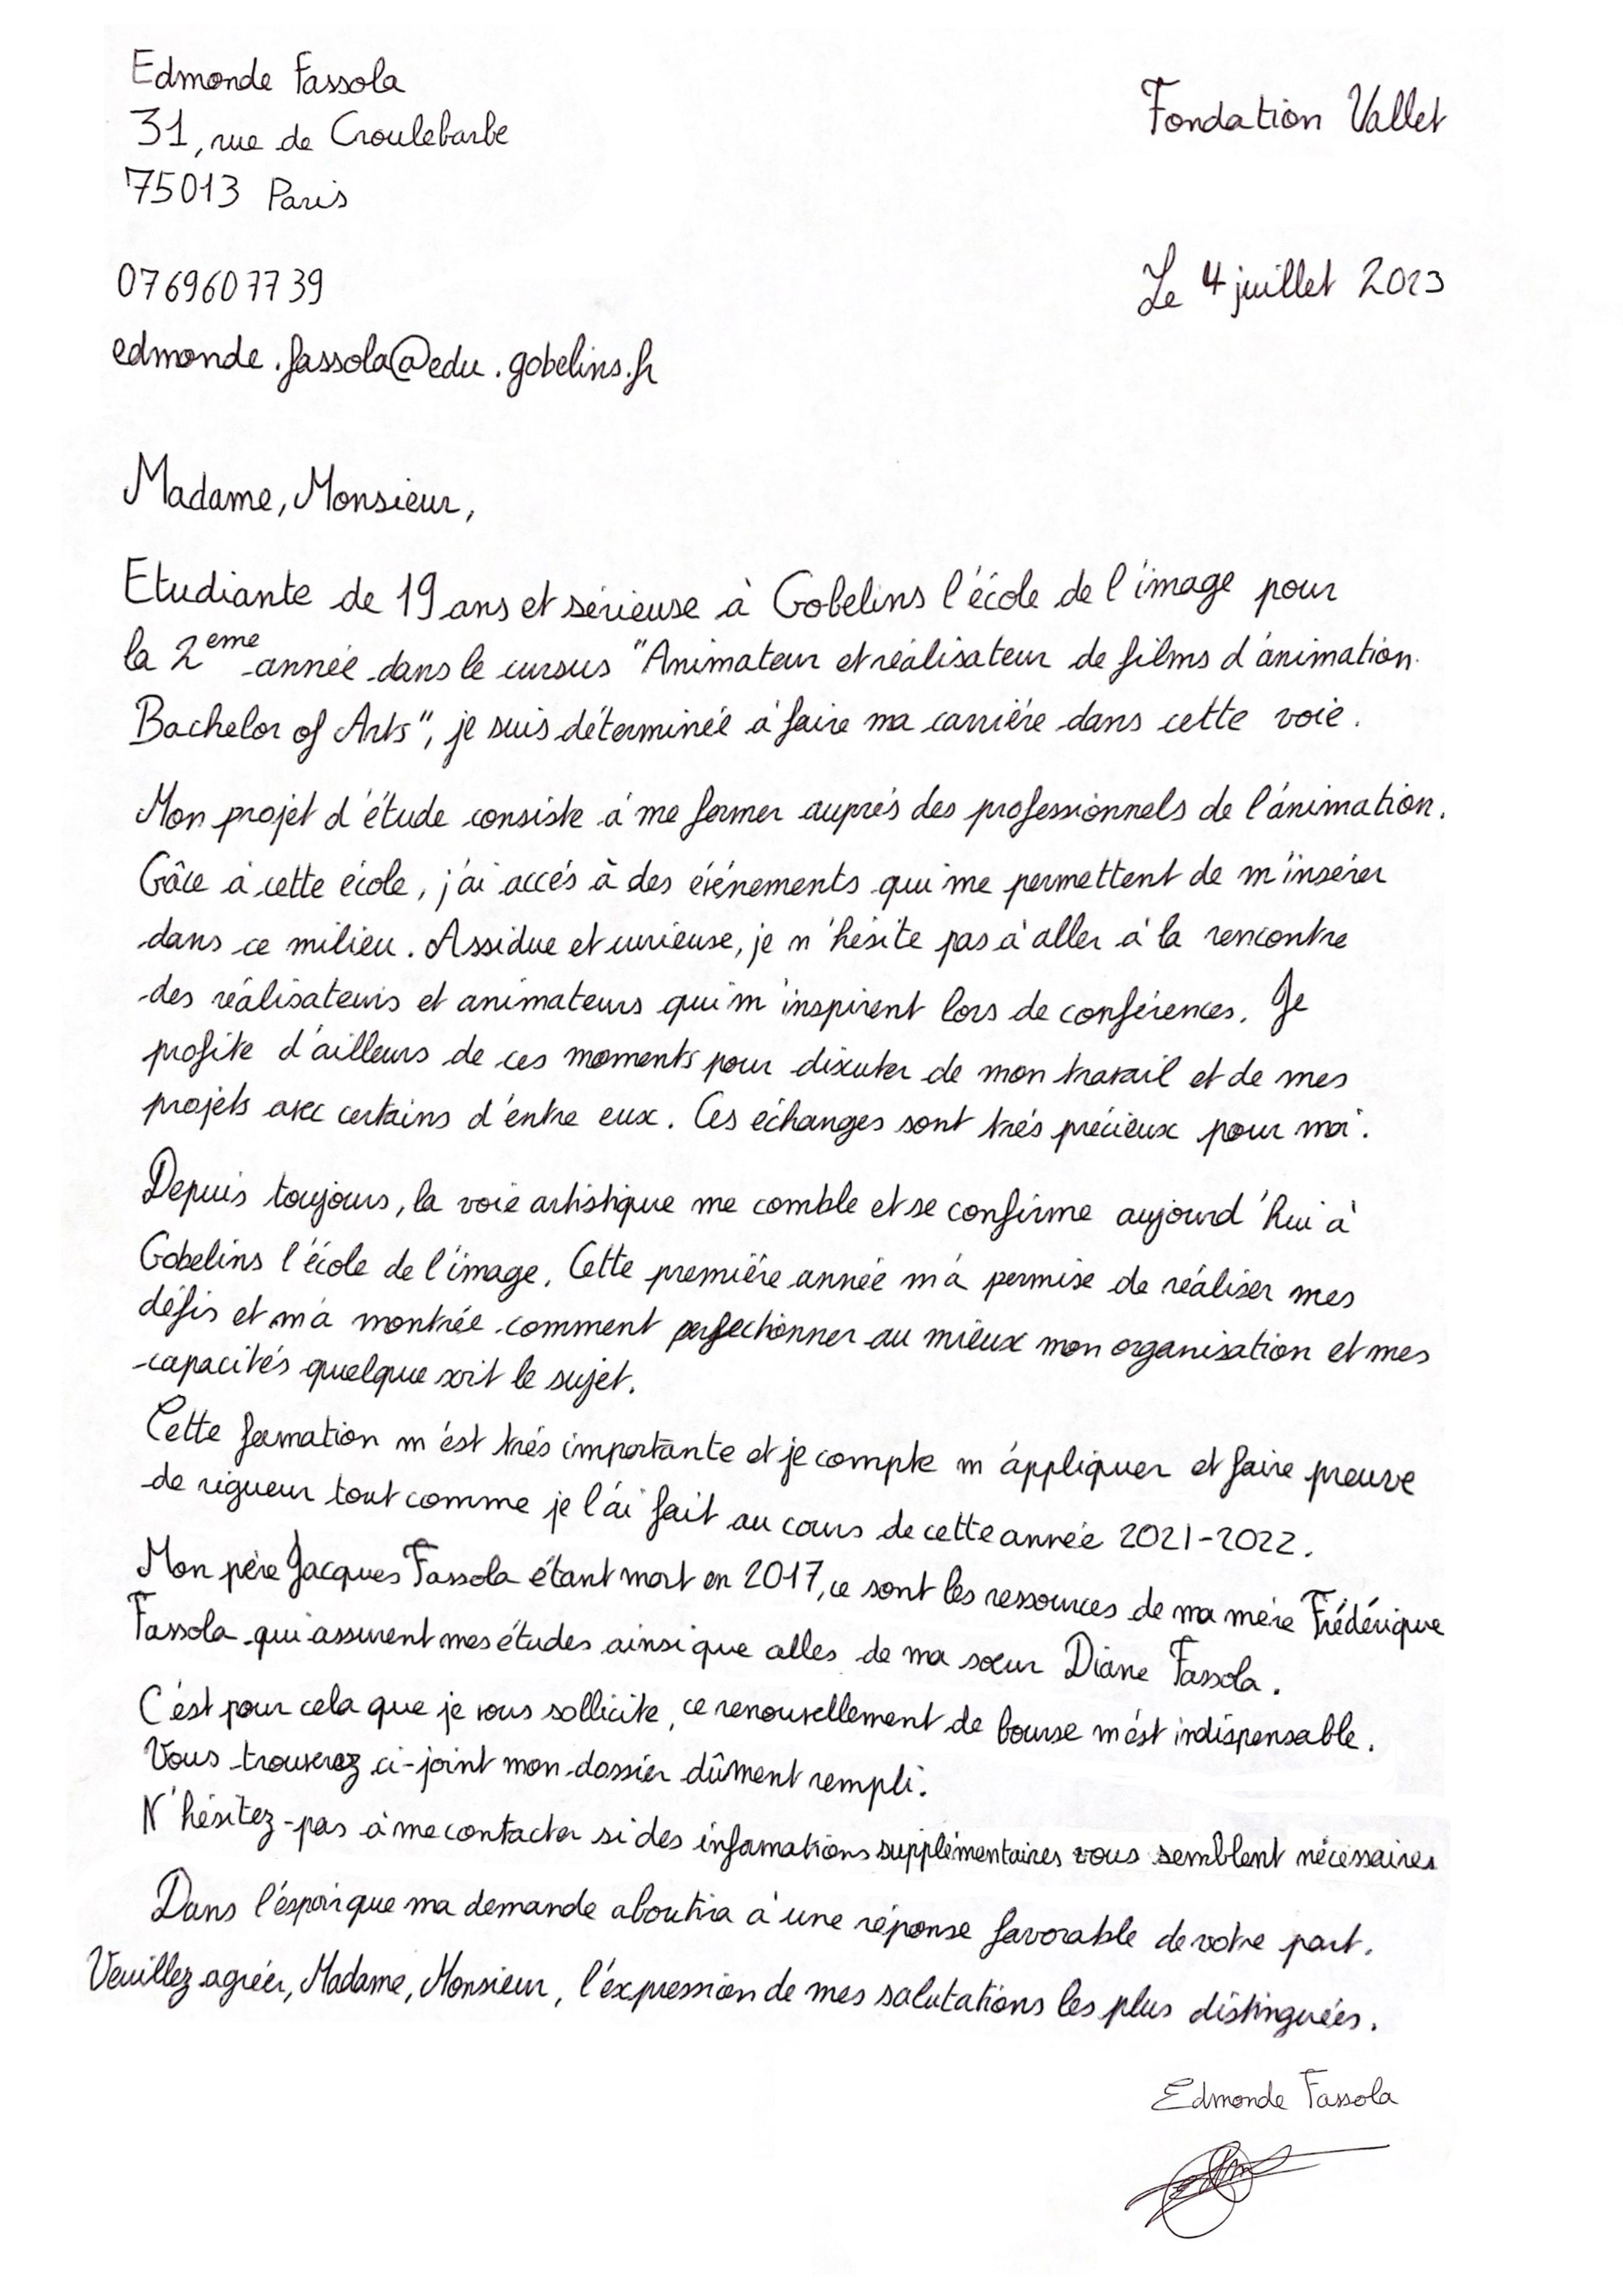 Edmonde Fassola
31, rue de Croulebarbe
75013 Paris
Fondation Vallet
0769607739
Le 4 juillet 2023
edmonde.fassola@edu.gobelins.fr
Madame, Monsieur,
Etudiante de 19 ans et sérieuse à Gobelins l'école de l'image pour
la 2eme année dans le cursus "Animateur et réalisateur de films d'animation
Bachelor of Arts", je suis déterminée à faire ma carrière dans cette voie.
Mon projet d'étude consiste à me former auprès des professionnels de l'animation.
Gâce à cette école, j'ai accés à des événements qui me permettent de m'insérer
dans ce milieu. Assidue et curieuse, je n'hésite pas à aller à la rencontre
des réalisateurs et animateurs qui m'inspirent lors de conférences. Je
profite d'ailleurs de ces moments pour discuter de mon travail et de mes
projets avec certains d'entre eux. Ces échanges sont très précieux pour moi.
Depuis toujours, la voie artistique me comble et se confirme aujourd'hui à
Gobelins l'école de l'image. Cette première année m'a permise de réaliser mes
défis et m'a montrée comment perfectionner au mieux mon organisation et mes
capacités quelque soit le sujet.
Cette formation m'est très importante et je compte m'appliquer et faire preuve
de rigueur tout comme je l'ai fait au cours de cette année 2021-2022.
Mon père Jacques Fassola étant mort en 2017, ce sont les ressources de ma mère Frédérique
Fassola qui assurent mes études ainsi que celles de ma sœur Diane Fassola.
C'est pour cela que je vous sollicite, ce renouvellement de bourse m'est indispensable.
Vous trouverez ci-joint mon dossier dûment rempli.
N'hésitez-pas à me contacter si des informations supplémentaires vous semblent nécessaires
Dans l'espoir que ma demande aboutira à une réponse favorable de votre part.
Veuillez agréer, Madame, Monsieur, l'expression de mes salutations les plus distinguées.
Edmonde Fassola